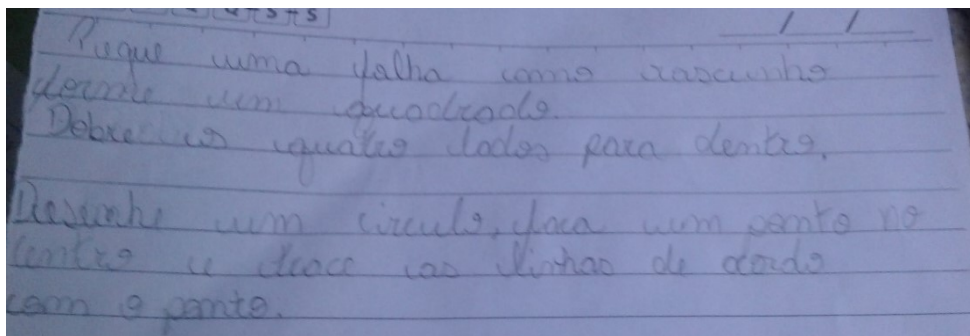 4 + 5 + 5
Pegue uma folha como rascunho
forme um quadrado.
Dobre os quatro lados para dentro.
Desenhe um circulo, faça um ponto no
centro e trace as linhas de acordo
com o ponto.